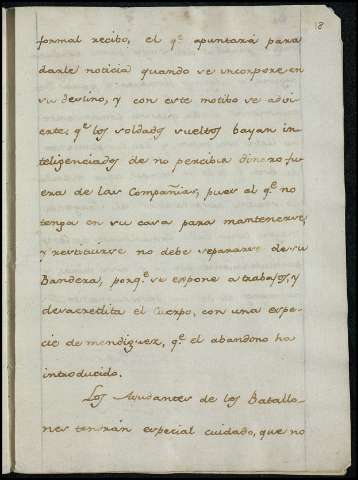 8
formal recibo, el q.e apuntará para
darle noticia quando se incorpore en
su destino, y con este motibo se advi
erte, q.e los soldados sueltos bayan in
teligenciados de no percibir dinero fu
era de las Compañias, pues el q.e no
tenga en su casa para mantenerse,
y restituirse no debe separarse de su
Bandera, porq.e se expone a trabajos, y
desacredita el Cuerpo, con una espe-
cie de mendiguez, q.e el abandono ha
introducido.
Los Ayudantes de los Batallo
nes tendrán especial cuidado, que no